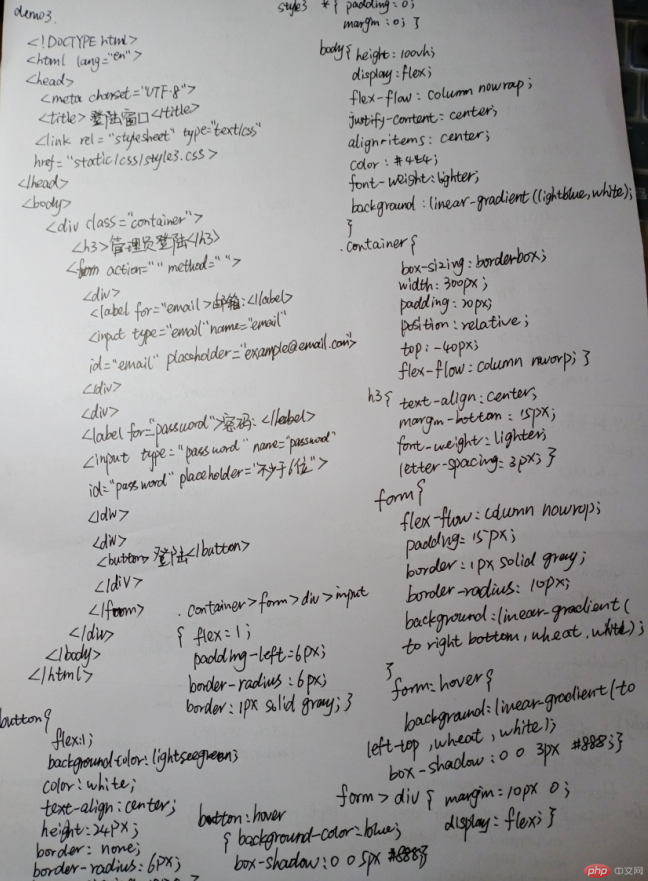 demo3.
<!DOCTYPE html>
<html lang="en">
<head>
<meta charset="UTF-8">
<title>登陆窗口</title>
<link rel="stylesheet" type="text/css"
href="static/css/style3.css>
</head>
<body>
<div class="container">
<h3>管理员登陆</h3>
<form action="" method="">
<div>
<label for="email>邮箱:</label>
<input type="email" name="email"
id="email" placeholder="example@email.com">
<div>
<div>
<label for="password">密码:</label>
<input type="password" name="password"
id="password" placeholder="不少于6位">
</div>
<div>
<button>登陆</button>
</div>
</form>
</div>
</body>
</html>
style3 *{ padding:0;
margin:0; }
body{ height:100vh;
display:flex;
flex-flow:column nowrap;
justify-content:center;
align-items:center;
color:#444;
font-weight:lighter;
background:linear-gradient(lightblue,white);
}
.container{
box-sizing:borderbox;
width:300px;
padding:20px;
position:relative;
top:-40px;
flex-flow:column nworp; }
h3{ text-align:center;
margin-bottom:15px;
font-weight:lighter;
letter-spacing:3px; }
form{
flex-flow:column nowrap;
padding:15px;
border:1px solid gray;
border-radius:10px;
background:linear-gradient(
to right bottom,wheat,white);
}
form:hover{
background:linear-gradient(to
left-top,wheat,white);
box-shadow:0 0 3px #888;}
form>div{ margin:10px 0;
display:flex; }
.container>form>div>input
{ flex=1;
padding-left=6px;
border-radius:6px;
border:1px solid gray; }
button{
flex:1;
background-color:lightseegreen;
color:white;
text-align:center;
height:24px;
border:none;
border-radius:6px;
button:hover
{ background-color:blue;
box-shadow:0 0 5px #888}
php 中文网